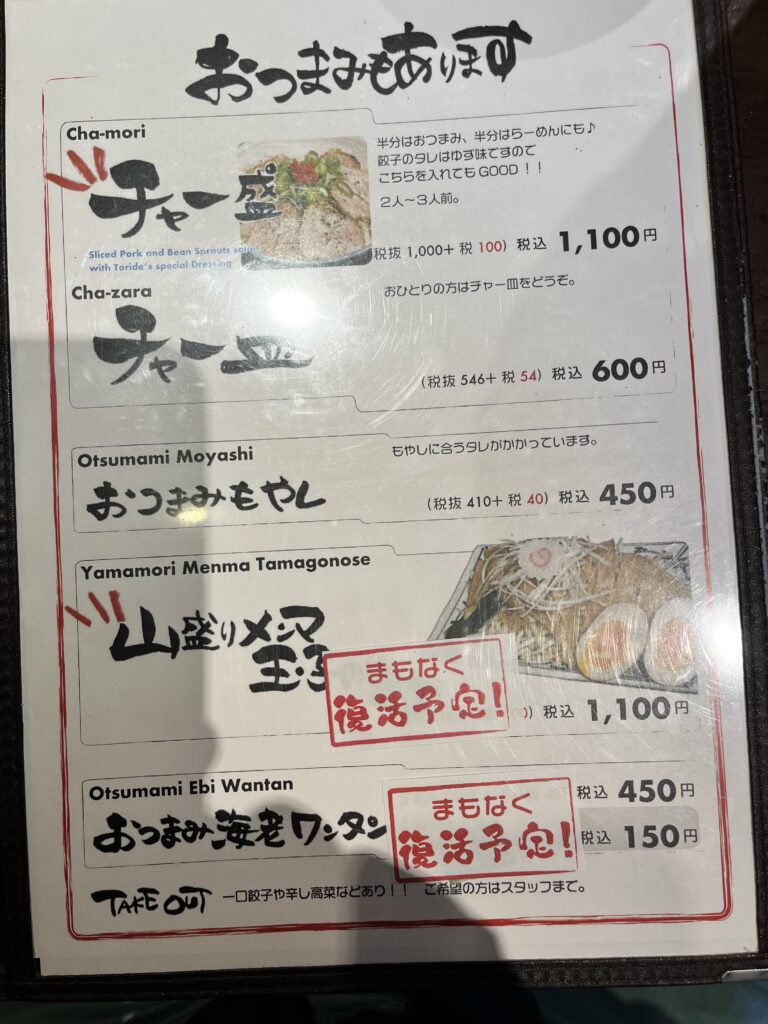 おつまみもあります
Cha-mori
チャー盛
半分はおつまみ、半分はらーめんにも♪
餃子のタレはゆず味ですので
こちらを入れてもGOOD！！
2人〜3人前。
Sliced Pork and Bean Sprouts salad
with Toride's special Dressing
税抜 1,000+ 税 100) 税込 1,100円
Cha-zara
おひとりの方はチャー皿をどうぞ。
チャー皿
(税抜 546+ 税 54) 税込 600円
Otsumami Moyashi
もやしに合うタレがかかっています。
おつまみもやし
(税抜 410+ 税 40) 税込 450円
Yamamori Menma Tamagonose
山盛りメンマ
玉子
まもなく
復活予定!
) 税込 1,100円
Otsumami Ebi Wantan
税込 450円
おつまみ海老ワンタン
まもなく
復活予定!
税込 150円
TAKE OUT 一口餃子や辛し高菜などあり！！ ご希望の方はスタッフまで。